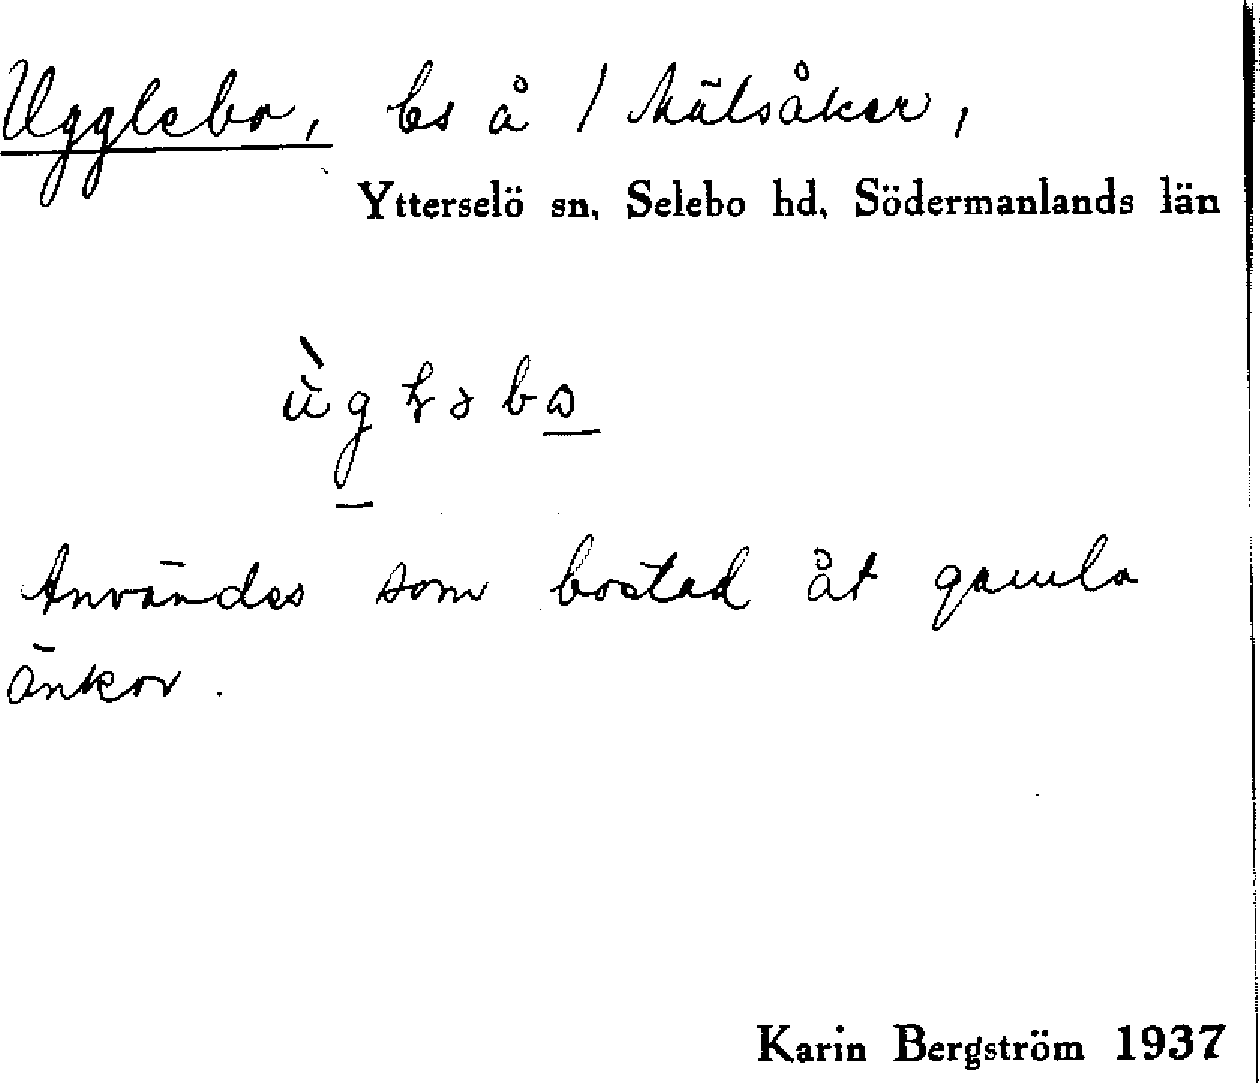 Ugglebo, bs å / Mälsåker,
Ytterselö sn, Selebo hd, Södermanlands län
Användes som bostad åt gamla
änkor.
Karin Bergström 1937